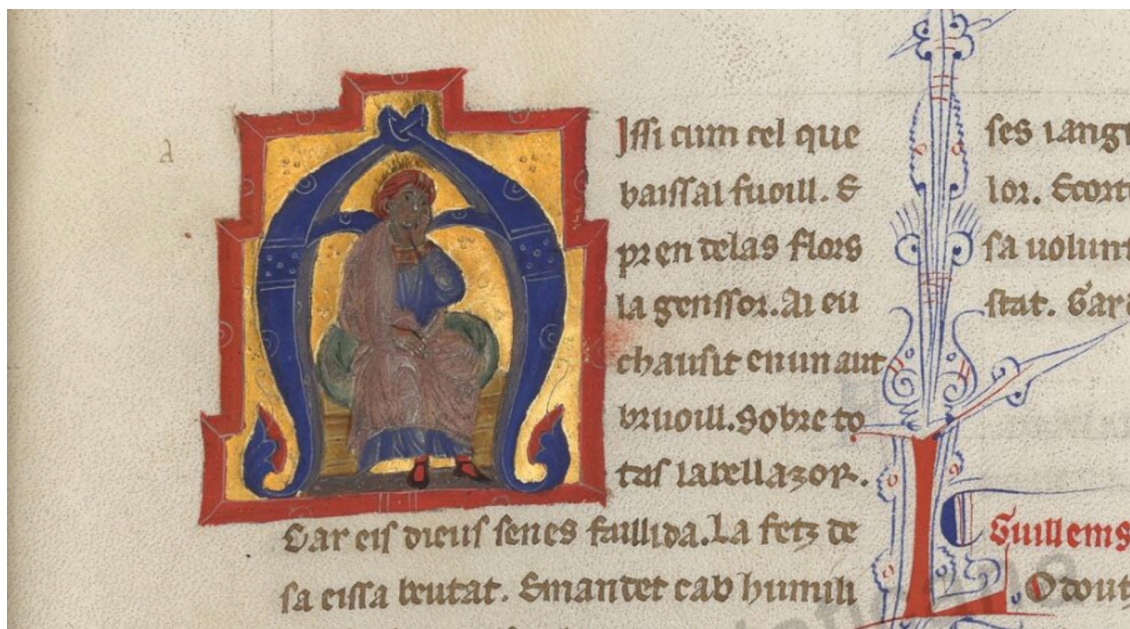 a
Issi cum cel que
baissal fuoill. E
pren delas flors
la genssor. Ai eu
chausit en un aut
bruoill. Sobre to
tas la bellazor.
Car eis dieus senes faillida. La fetz de
sa eissa beutat. E mandet cab humili
ses langu
lor. E cort
sa uolunt
stat. Gar
Guillems
L